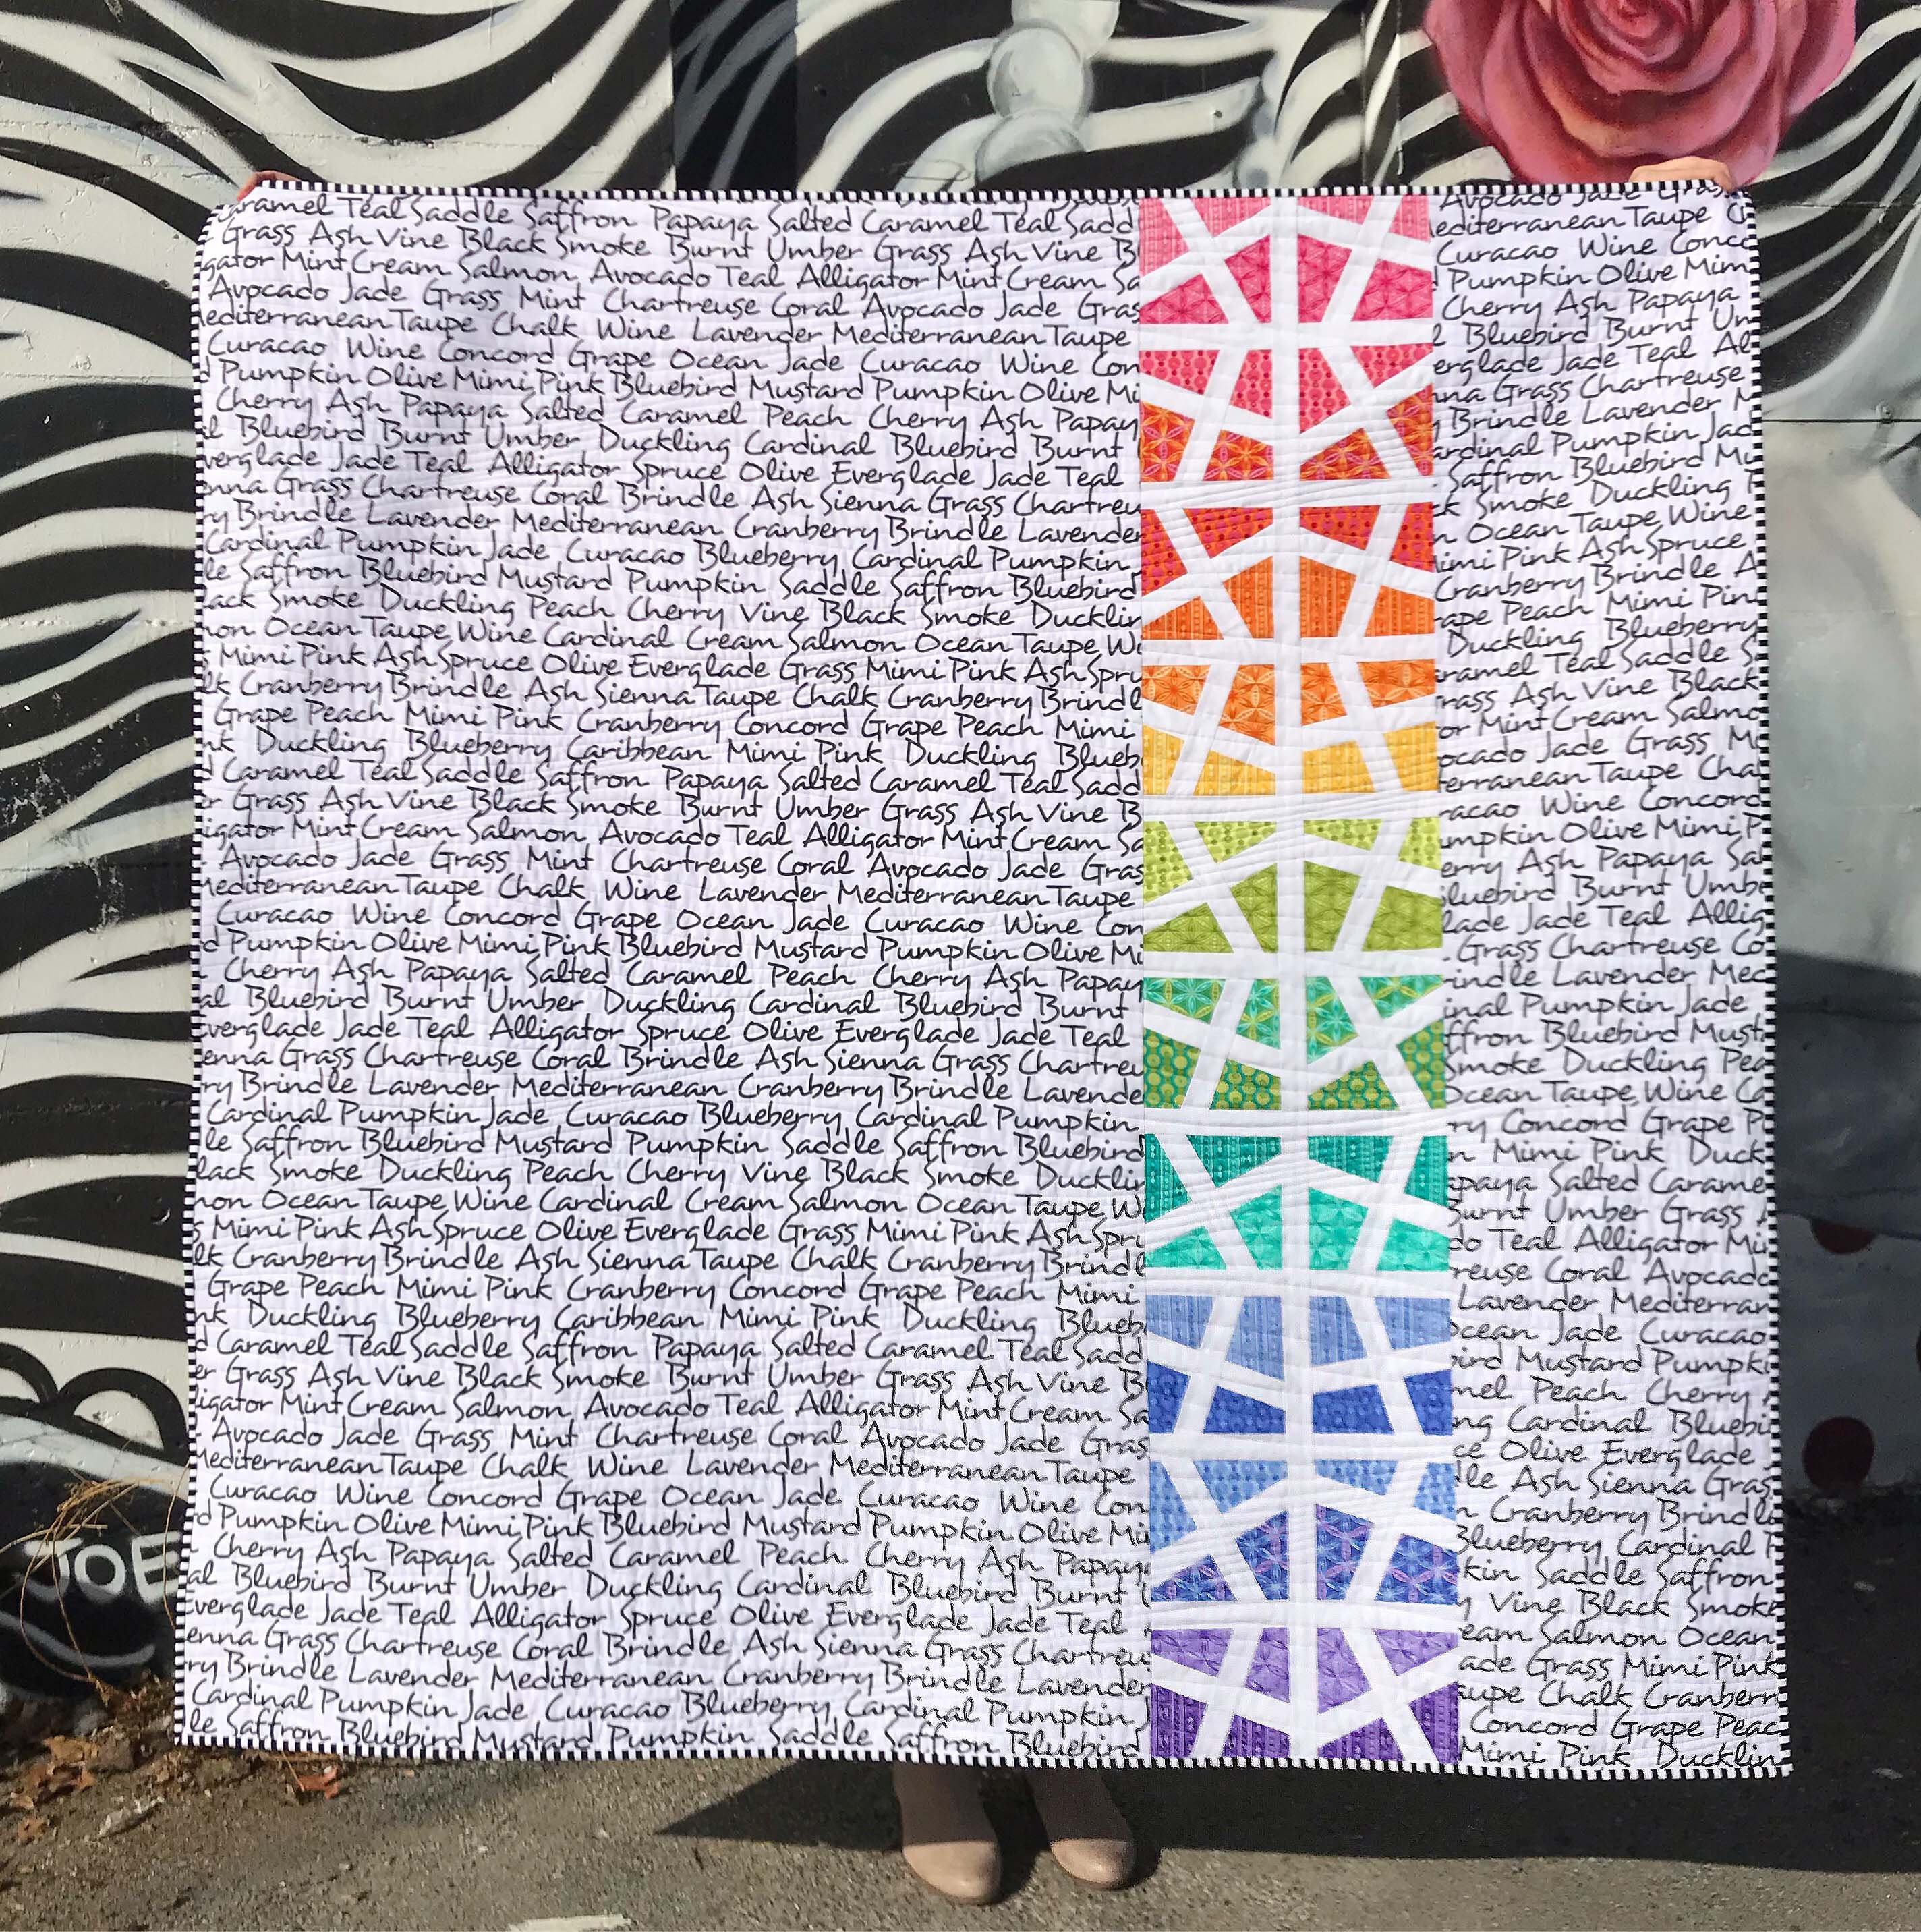 Caramel Teal Saddle Saffron Papaya Salted Caramel Teal Sadd
Grass Ash Vine Black Smoke Burnt Umber Grass Ash Vine B
gator Mint Cream Salmon Avocado Teal Alligator Mint Cream Sa
Avocado Jade Grass Mint Chartreuse Coral Avocado Jade Gras
Mediterranean Taupe Chalk Wine Lavender Mediterranean Taupe
Curacao Wine Concord Grape Ocean Jade Curacao Wine Con
d Pumpkin Olive Mimi Pink Bluebird Mustard Pumpkin Olive Mi
Cherry Ash Papaya Salted Caramel Peach Cherry Ash Papay
l Bluebird Burnt Umber Duckling Cardinal Bluebird Burnt
verglade Jade Teal Alligator Spruce Olive Everglade Jade Teal
enna Grass Chartreuse Coral Brindle Ash Sienna Grass Chartreu
ry Brindle Lavender Mediterranean Cranberry Brindle Lavender
Cardinal Pumpkin Jade Curacao Blueberry Cardinal Pumpkin
le Saffron Bluebird Mustard Pumpkin Saddle Saffron Bluebird
lack Smoke Duckling Peach Cherry Vine Black Smoke Ducklin
mon Ocean Taupe Wine Cardinal Cream Salmon Ocean Taupe Wi
s Mimi Pink Ash Spruce Olive Everglade Grass Mimi Pink Ash Spru
lk Cranberry Brindle Ash Sienna Taupe Chalk Cranberry Brindl
Grape Peach Mimi Pink Cranberry Concord Grape Peach Mimi
nk Duckling Blueberry Caribbean Mimi Pink Duckling Blueb
d Caramel Teal Saddle Saffron Papaya Salted Caramel Teal Sadd
er Grass Ash Vine Black Smoke Burnt Umber Grass Ash Vine B
igator Mint Cream Salmon Avocado Teal Alligator Mint Cream Sa
Avocado Jade Grass Mint Chartreuse Coral Avocado Jade Gras
Mediterranean Taupe Chalk Wine Lavender Mediterranean Taupe
Curacao Wine Concord Grape Ocean Jade Curacao Wine Con
d Pumpkin Olive Mimi Pink Bluebird Mustard Pumpkin Olive Mi
Cherry Ash Papaya Salted Caramel Peach Cherry Ash Papay
al Bluebird Burnt Umber Duckling Cardinal Bluebird Burnt
Everglade Jade Teal Alligator Spruce Olive Everglade Jade Teal
enna Grass Chartreuse Coral Brindle Ash Sienna Grass Chartreu
ry Brindle Lavender Mediterranean Cranberry Brindle Lavende
Cardinal Pumpkin Jade Curacao Blueberry Cardinal Pumpkin
le Saffron Bluebird Mustard Pumpkin Saddle Saffron Bluebird
lack Smoke Duckling Peach Cherry Vine Black Smoke Ducklin
mon Ocean Taupe Wine Cardinal Cream Salmon Ocean Taupe W
s Mimi Pink Ash Spruce Olive Everglade Grass Mimi Pink Ash Spru
lk Cranberry Brindle Ash Sienna Taupe Chalk Cranberry Brindl
Grape Peach Mimi Pink Cranberry Concord Grape Peach Mimi
nk Duckling Blueberry Caribbean Mimi Pink Duckling Blueb
d Caramel Teal Saddle Saffron Papaya Salted Caramel Teal Sadd
er Grass Ash Vine Black Smoke Burnt Umber Grass Ash Vine B
ligator Mint Cream Salmon Avocado Teal Alligator Mint Cream Sa
Avocado Jade Grass Mint Chartreuse Coral Avocado Jade Gras
Mediterranean Taupe Chalk Wine Lavender Mediterranean Taupe
Curacao Wine Concord Grape Ocean Jade Curacao Wine Con
rd Pumpkin Olive Mimi Pink Bluebird Mustard Pumpkin Olive Mi
Cherry Ash Papaya Salted Caramel Peach Cherry Ash Papaya
al Bluebird Burnt Umber Duckling Cardinal Bluebird Burnt
Everglade Jade Teal Alligator Spruce Olive Everglade Jade Teal
enna Grass Chartreuse Coral Brindle Ash Sienna Grass Chartreu
ry Brindle Lavender Mediterranean Cranberry Brindle Lavender
Cardinal Pumpkin Jade Curacao Blueberry Cardinal Pumpkin J
le Saffron Bluebird Mustard Pumpkin Saddle Saffron Bluebird
Avocado Jade Gras
Mediterranean Taupe C
Curacao Wine Conco
d Pumpkin Olive Mim
Cherry Ash Papaya
l Bluebird Burnt Um
erglade Jade Teal Al
nna Grass Chartreuse
y Brindle Lavender M
ardinal Pumpkin Jad
Saffron Bluebird Mu
ck Smoke Duckling P
n Ocean Taupe Wine
imi Pink Ash Spruce
Cranberry Brindle A
rape Peach Mimi Pin
Duckling Blueberry
aramel Teal Saddle S
rass Ash Vine Black
or Mint Cream Salmo
ocado Jade Grass M
terranean Taupe Cha
racao Wine Concord
umpkin Olive Mimi P
erry Ash Papaya Sal
luebird Burnt Umbe
lade Jade Teal Allig
Grass Chartreuse Co
rindle Lavender Med
inal Pumpkin Jade
ffron Bluebird Must
Smoke Duckling Pea
Ocean Taupe Wine Ca
ry Concord Grape P
n Mimi Pink Duck
apaya Salted Carame
Burnt Umber Grass A
do Teal Alligator Mi
reuse Coral Avocado
Lavender Mediterran
Ocean Jade Curacao
bird Mustard Pumpki
mel Peach Cherry
ng Cardinal Bluebi
ce Olive Everglade
dle Ash Sienna Gras
n Cranberry Brindle
Blueberry Cardinal P
kin Saddle Saffron
y Vine Black Smoke
eam Salmon Ocean
ade Grass Mimi Pink
aupe Chalk Cranberr
Concord Grape Peac
Mimi Pink Ducklin
JOE